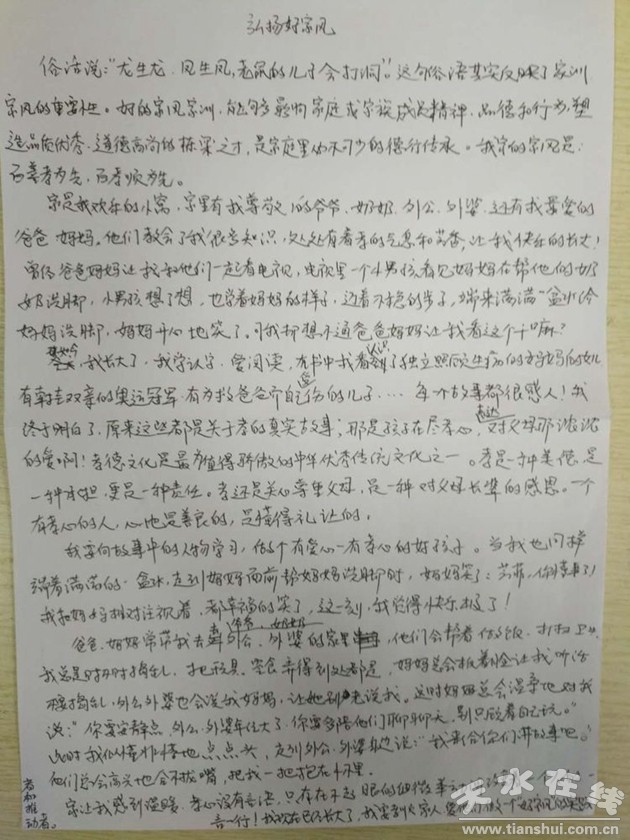 弘扬好家风
俗话说:"龙生龙、凤生凤,老鼠的儿子会打洞"。这句俗语其实反映了家训
家风的重要性。好的家风家训,能够影响家庭或家族成员精神、品德和行为,塑
造品质优秀、道德高尚的栋梁之才,是家庭里必不可少的德行传承。我家的家风是:
百善孝为先,百孝顺为先。
家是我欢乐的小窝,家里有我尊敬的爷爷、奶奶、外公、外婆,还有我最爱的
爸爸妈妈。他们教会了我很多知识,处处有着孝的气息和芳香,让我快乐的长大!
曾经爸爸妈妈让我和他们一起看电视,电视里一个小男孩看见妈妈在帮他的奶
奶洗脚,小男孩想了想,也学着妈妈的样子,迈着不稳的步子,端来满满一盆水给
妈妈洗脚,妈妈开心地笑了。可我却想不通爸爸妈妈让我看这个干嘛?
我长大了,我学认字,爱阅读,在书中我看到了独立照顾生病的妈妈的
有牵挂双亲的奥运冠军,有为救爸爸的儿子……每个故事都很感人!我
终于明白了,原来这些都是关于孝的真实故事;那是孩子在尽孝心,表达对父母那浓浓
的爱啊!孝德文化是最为值得骄傲的中华优秀传统文化之一。孝是一种美德,是
一种承担,更是一种责任。孝还是关心尊重父母,是一种对父母长辈的感恩。一个
有孝心的人,心地是善良的,是懂得礼让的。
我要向故事中的人物学习,做个有爱心有孝心的好孩子。当我也同样
端着满满的一盆水,走到妈妈面前帮妈妈洗脚时,妈妈笑了:你真棒了!
我和妈妈相对注视着,都幸福的笑了,这一刻,我觉得快乐极了!
爸爸、妈妈常带我去爷爷、奶奶、外公、外婆的家里,他们会帮着做饭、打扫卫生,
我总是时不时捣乱,把玩具、零食弄得到处都是,妈妈总会板着脸让我听话
不要捣乱,外公外婆也会说我妈妈,让她别老说我。这时妈妈总会温柔地对我
说:"你要安静点,外公、外婆年纪大了,你要多陪他们聊聊天,别只顾着自己玩。"
此时我似懂非懂地点点头,走到外公、外婆身边说:"我来给你们讲故事吧。"
他们总会高兴地合不拢嘴,把我一把抱在怀里。
家让我感到温暖,孝心没有, 只存在不起眼的细微
言一行!我现在已经长大了,我要做一个好家风
者和推
动者。
天水在线
www.tianshui.com.cn